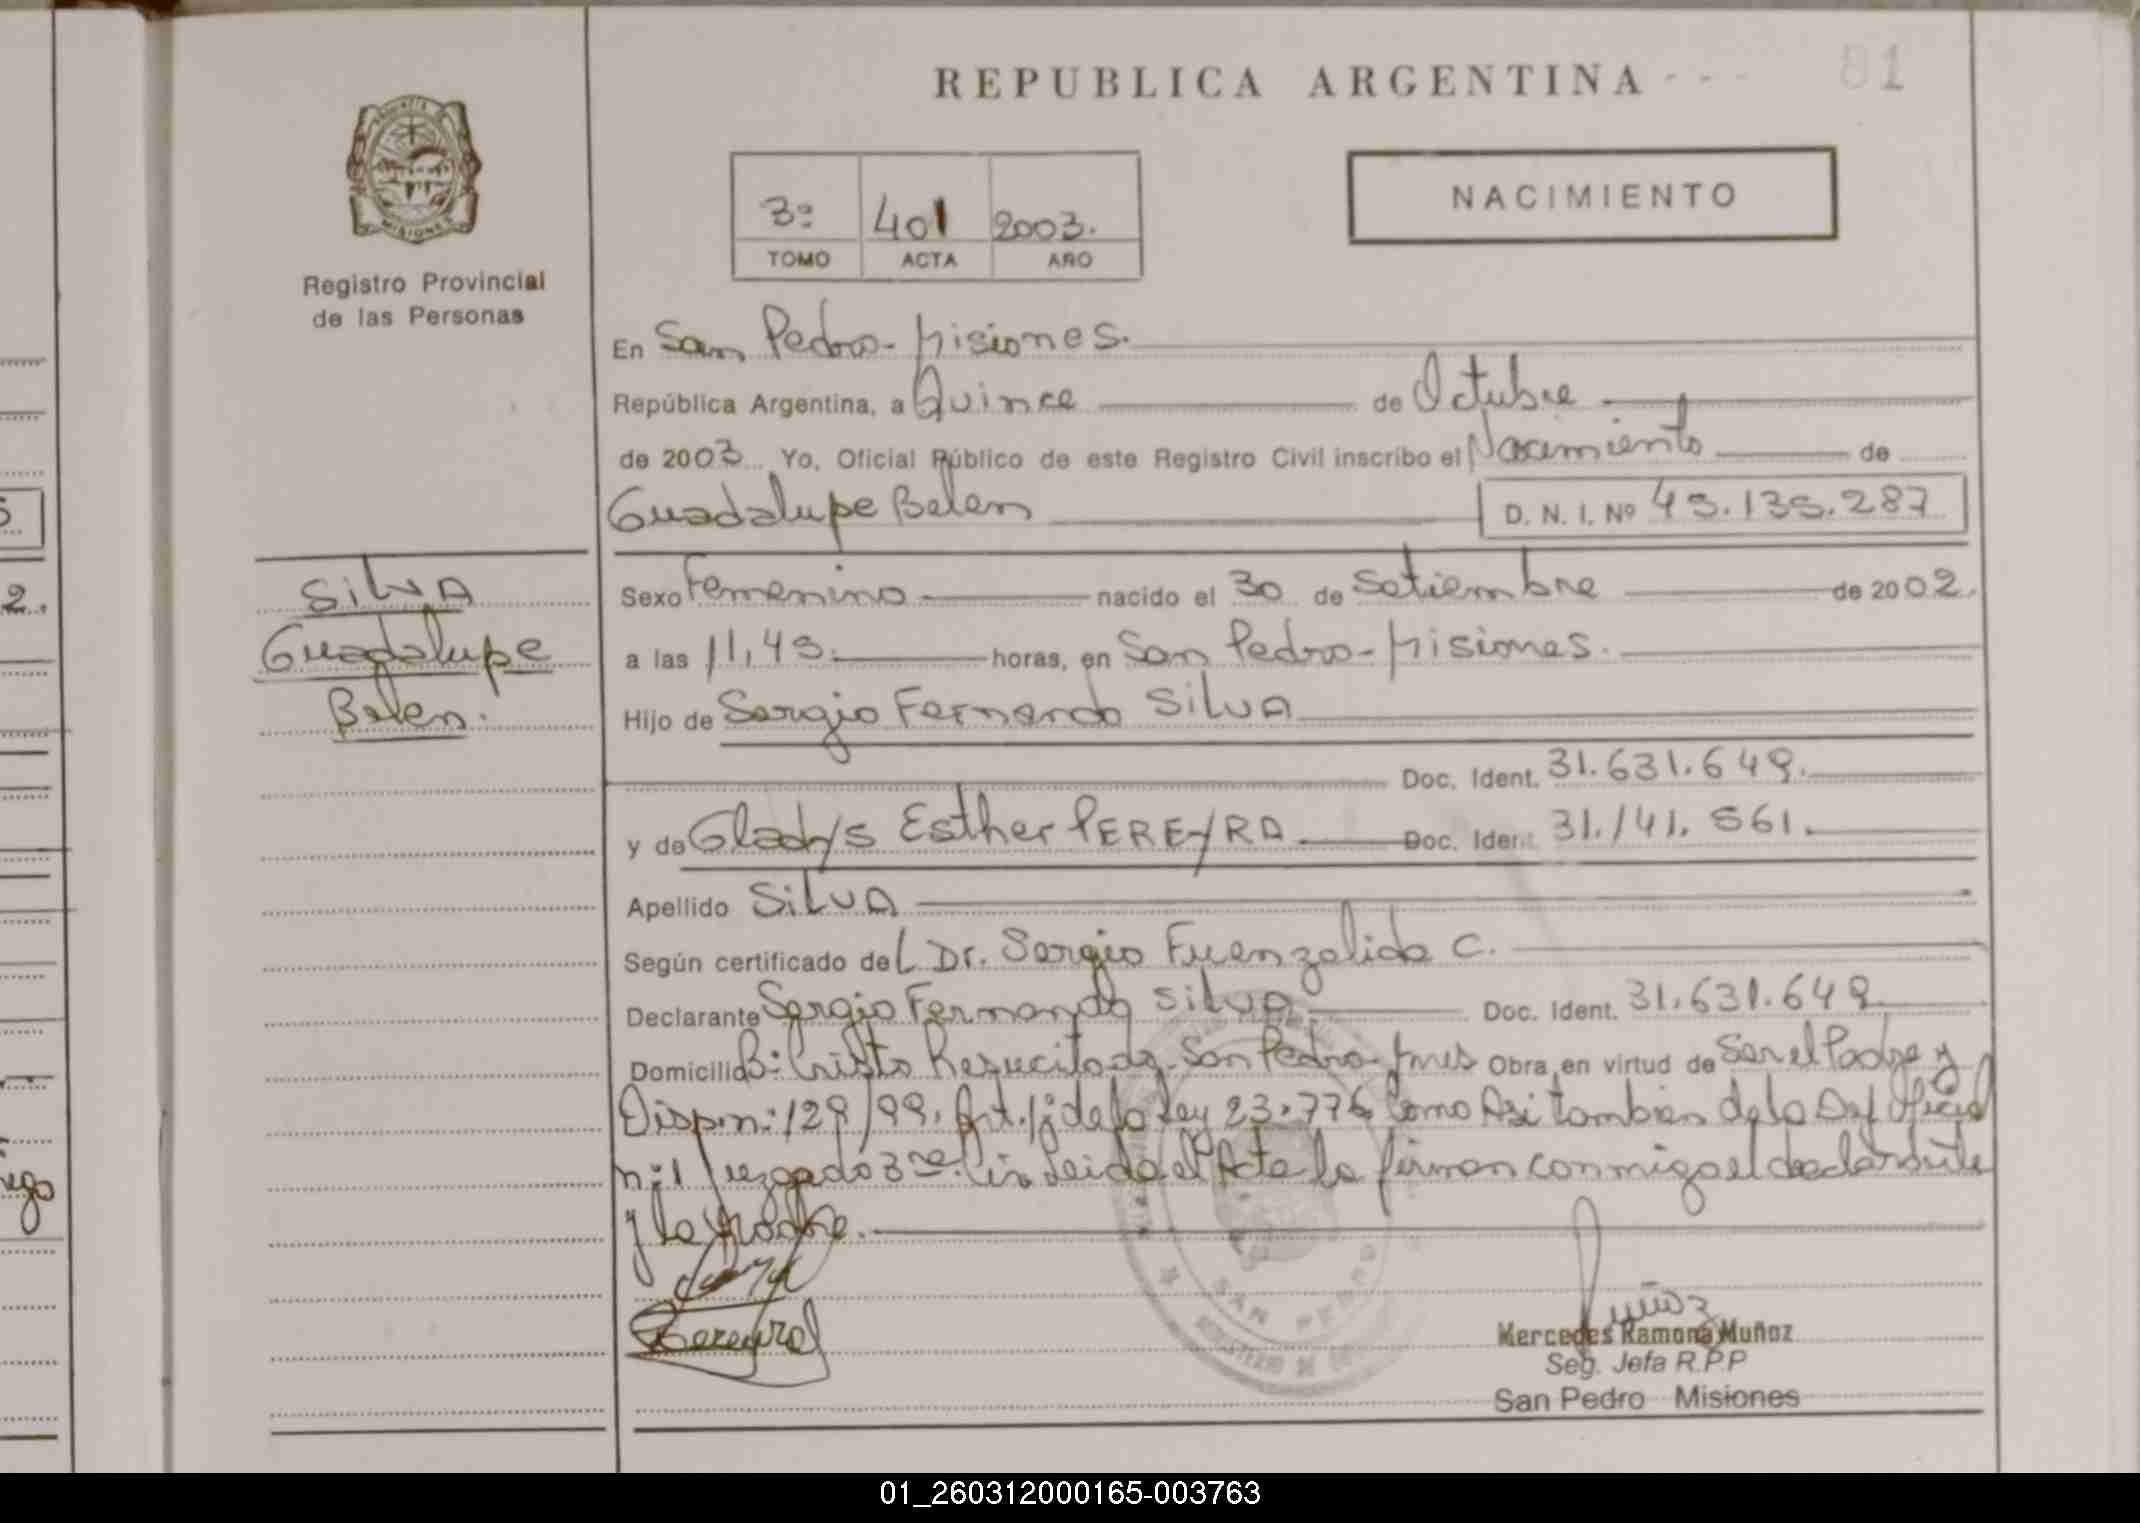 REPUBLICA ARGENTINA - - -
81
3º 401 2003.
TOMO ACTA AÑO
NACIMIENTO
PROVINCIA
MISIONES
Registro Provincial
de las Personas
En San Pedro - Misiones.
República Argentina, a Quince de Octubre
de 2003 Yo, Oficial Público de este Registro Civil inscribo el Nacimiento de
Guadalupe Belen D. N. I. Nº 45.135.287
Silva
Guadalupe
Belen.
Sexo Femenino nacido el 30 de Setiembre de 2002.
a las 11,45. horas, en San Pedro - Misiones.
Hijo de Sergio Fernando Silva
Doc. Ident. 31.631.649.
y de Gladys Esther PEREYRA Doc. Ident. 31.141.561.
Apellido SilVA
Según certificado del Dr. Sergio Fuenzalida C.
Declarante Sergio Fernando Silva Doc. Ident. 31.631.649
Domicilio Bº Cristo Resucitado - San Pedro - Mnes Obra en virtud de Ser el Padre y
Disp. nº 129/99. Art. 1º de la Ley 23.776 Como Asi tambien de la Def Oficial
nº 1 Juzgado 3ra. Cir Leida el Acta la firman conmigo el declarante
y la Madre.
Pereyra
SAN PEDRO
MINISTERIO DE
Muñoz
Mercedes Ramona Muñoz
Seg. Jefa R.P.P
San Pedro Misiones
5
2.
01_260312000165-003763